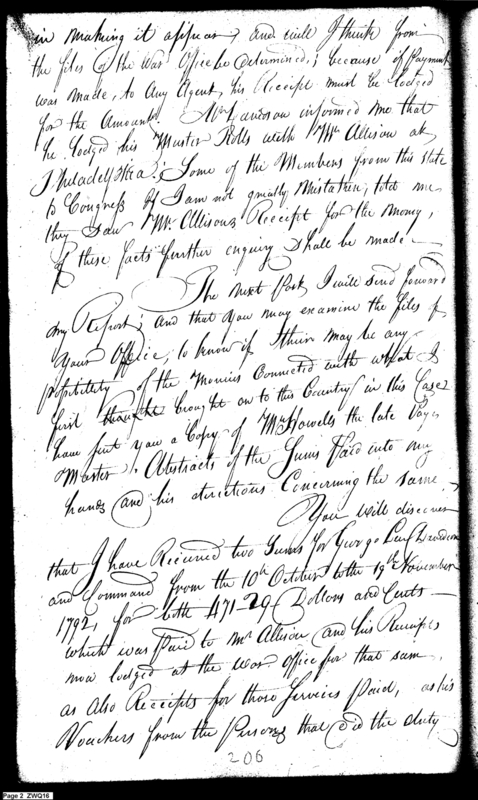 in making it appear, and will I think from
the files of the War Office be Determined; because if Payment
was made, to any Agent, his Receipt must be lodged
for the Amount. Mr informed me that
he lodged his Muster Rolls with Mr Allison at
Philadelphia; Some of the Members from this State
to Congress if I am not greatly Mistaken, told me
they Saw Mr Allisons Receipt for the Money,
of these facts further enquiry Shall be made —
The next Post I will Send forward
my Report; and that you may examine the files of
your Office, to know if there may be any
possibility of the Monies Connected with what I
first thought brought on to this Country in this Case
have sent you a Copy of Mr Howells the late Pay
Master, Abstracts of the Sums Paid into my
hands and his directions Concerning the same —
You will discover
that I have Received two Sums for George Lieut
and Command from the 10th October to the 19th November
1792, for both 471-29 Dollars and Cents —
which was Paid to Mr Allison and his Receipts
now lodged at the War Office for that sum,
as also Receipts for those Services Paid, as his
Vouchers from the Persons that did the duty
206
Page 2 ZWQ16